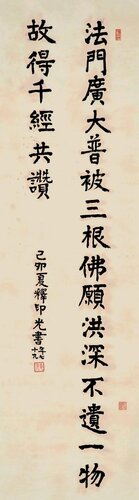 法門廣大普被三根佛願洪深不遺一物
故得千經共讚
己卯夏釋印光書時年七十九